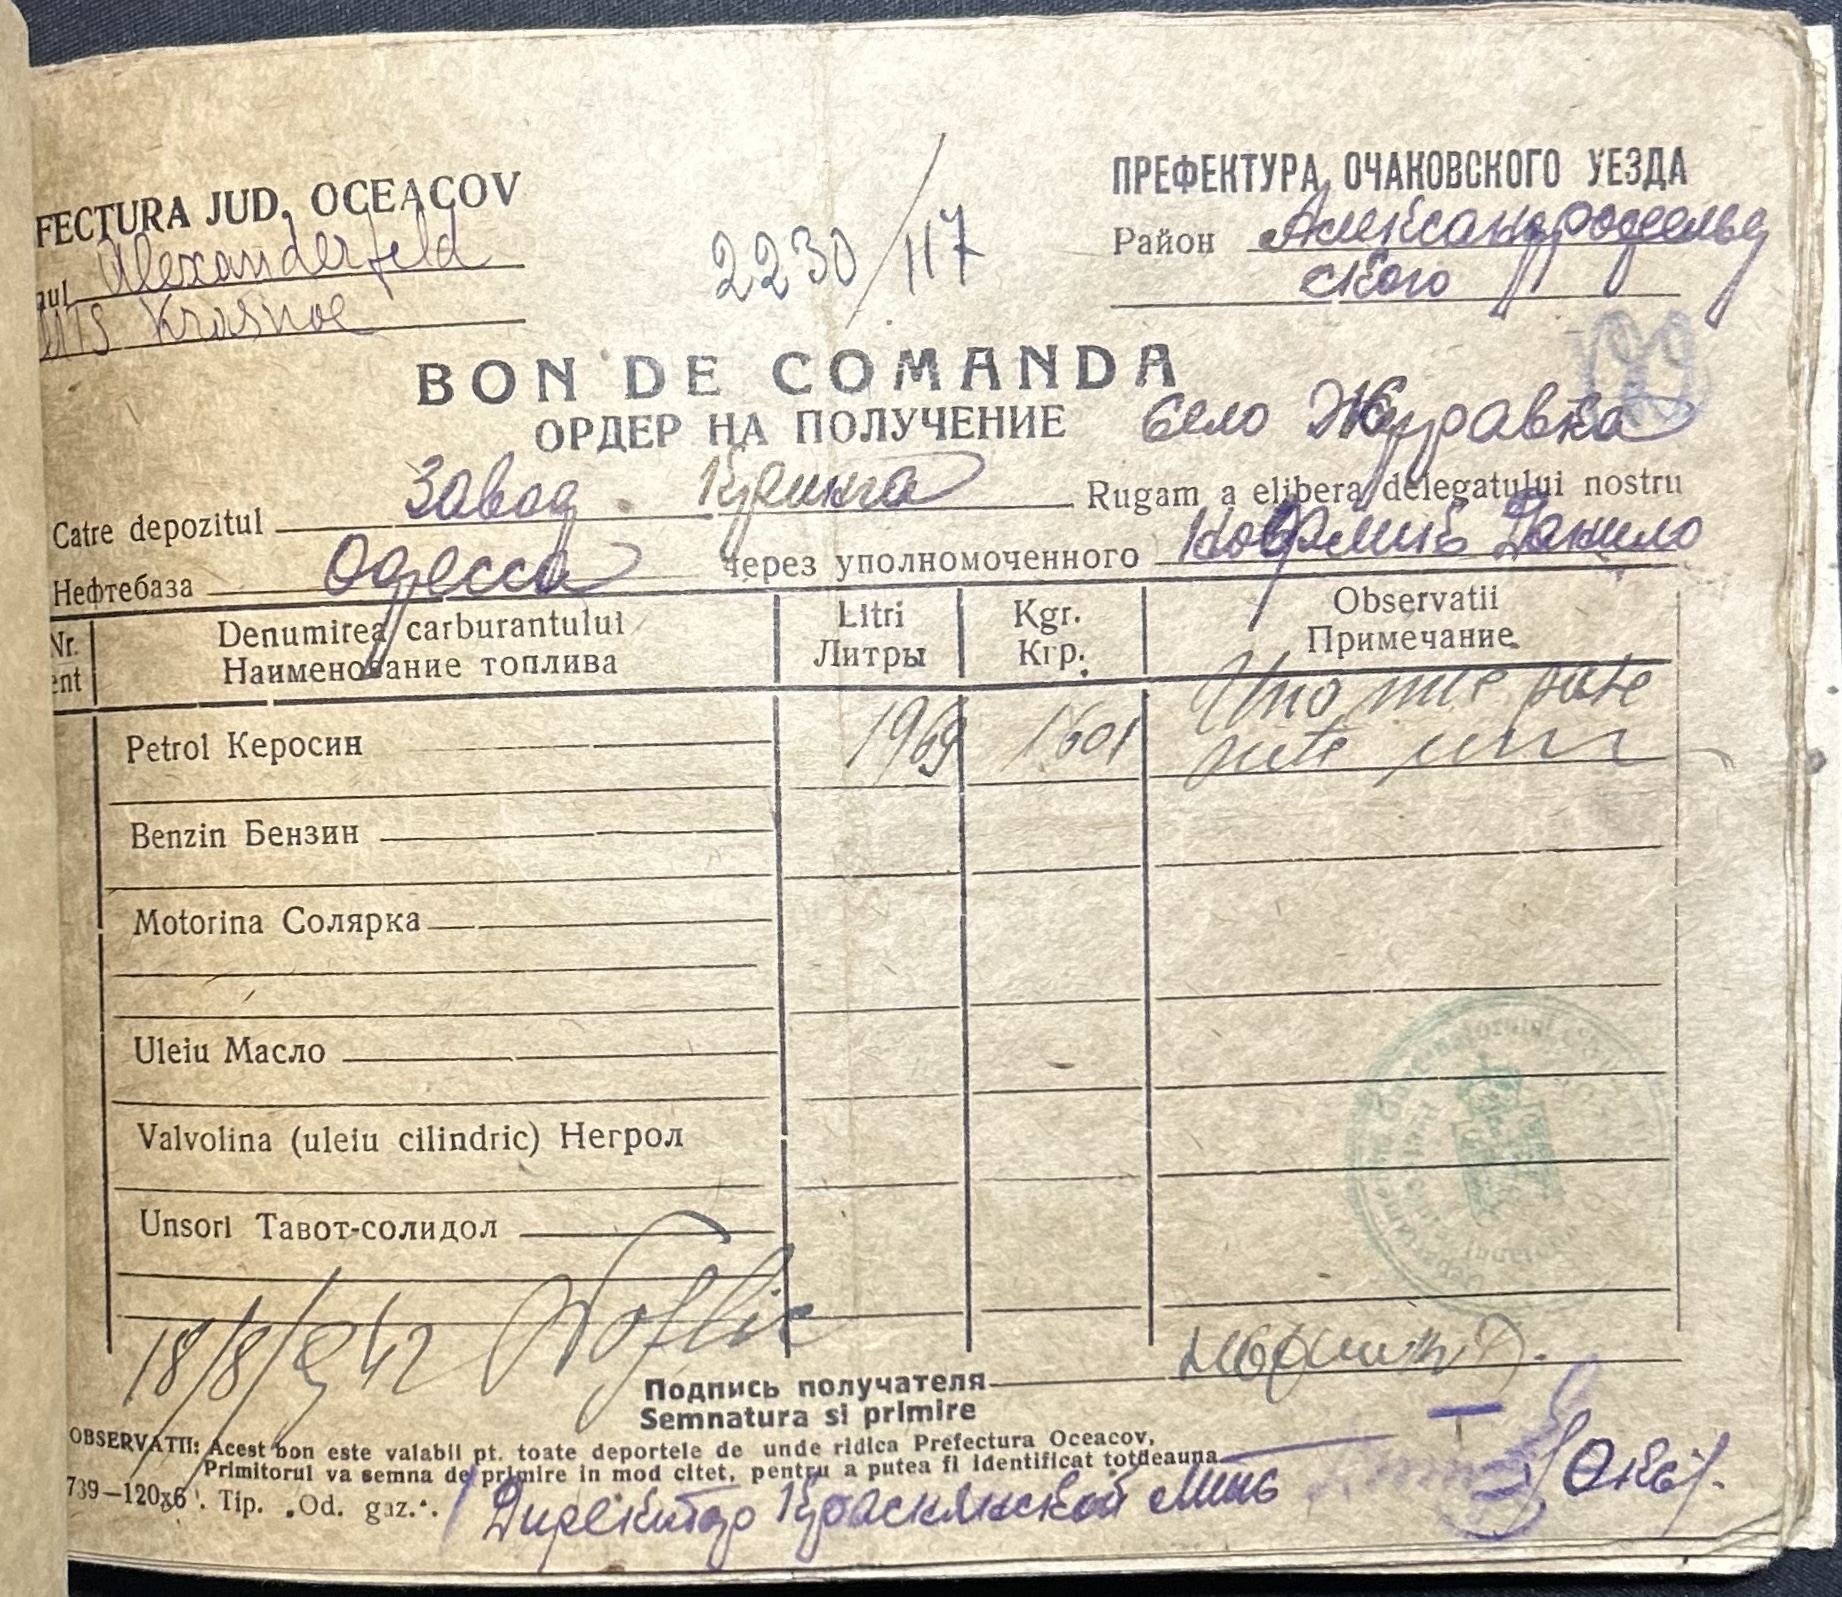 FECTURA JUD. OCEACOV
Alexanderfeld
MTS Krasnoe
2230/117
ПРЕФЕКТУРА ОЧАКОВСКОГО УЕЗДА
Район Александрфельд
ского
BON DE COMANDA
ОРДЕР НА ПОЛУЧЕНИЕ село Журавка
Catre depozitul Завод Rugam a elibera delegatului nostru
Нефтебаза Одесса через уполномоченного Данило
Nr. Denumirea carburantului Litri Kgr. Observatii
ent Наименование топлива Литры Кгр. Примечание
Petrol Керосин 1969 1601 Una mie sase
sute una
Benzin Бензин
Motorina Солярка
Uleiu Масло
Valvolina (uleiu cilindric) Негрол
Unsori Тавот-солидол
18/8/942
Подпись получателя
Semnatura si primire
OBSERVATII: Acest bon este valabil pt. toate deportele de unde ridica Prefectura Oceacov,
Primitorul va semna de primire in mod citet, pentru a putea fi identificat totdeauna
739—120x6. Tip. „Od. gaz.“. Директор Краснянской МТС